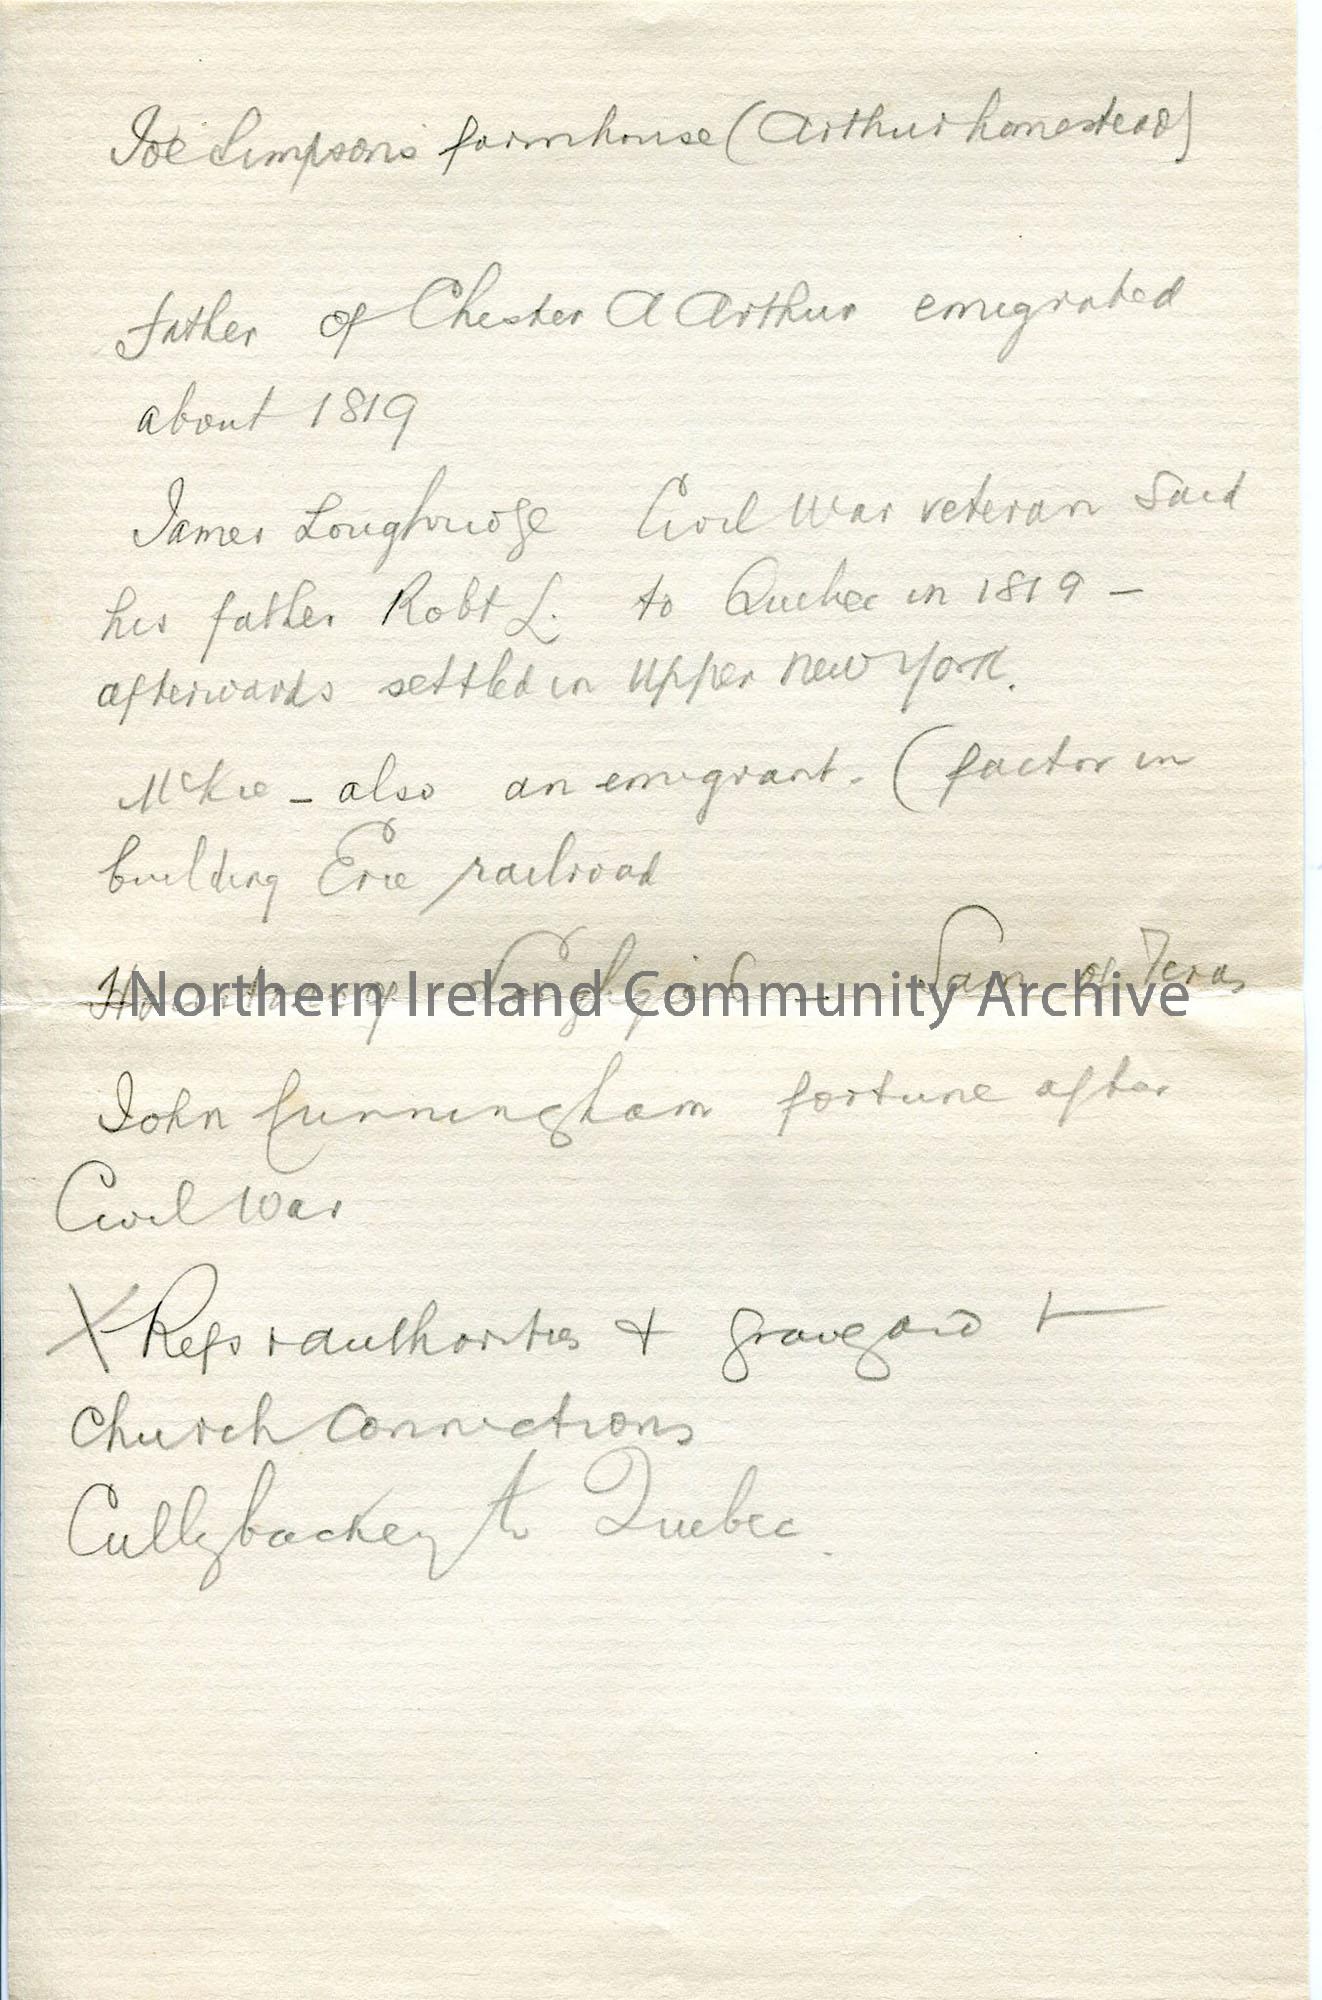 Joe Simpson's farmhouse (Arthur homestead)
Father of Chester A Arthur emigrated
about 1819
James Loughridge Civil War veteran said
his father Robt L. to Quebec in 1819 –
afterwards settled in Upper New York.
McKee – also an emigrant. (factor in
building Erie railroad
– Sam of Texas
Northern Ireland Community Archive
John Cunningham fortune after
Civil War
X Regs + authorities + graveyard +
Church Connections
Cullybackey to Quebec.